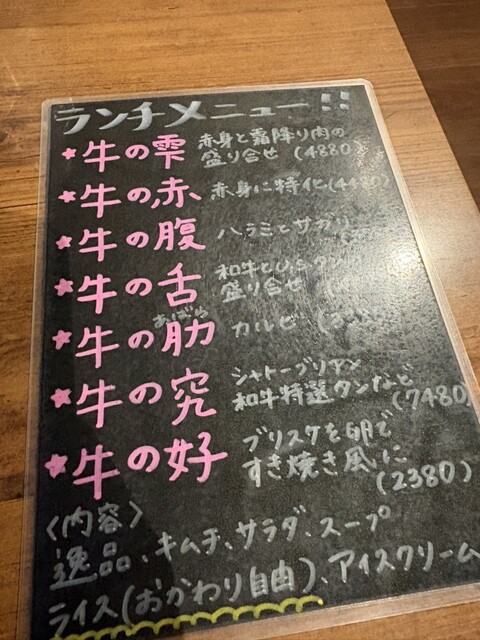 ランチメニュー!!
★牛の雫 赤身と霜降り肉の
盛り合せ (4880)
★牛の赤 赤身に特化(4480)
★牛の腹 ハラミとサガリ
★牛の舌 和牛とU.S.タン
盛り合せ
あばら
★牛の肋 カルビ
★牛の究 シャトーブリアン
和牛特選タンなど
(7480)
★牛の好 ブリスケを卵で
すき焼き風に
(2380)
〈内容〉
逸品、キムチ、サラダ、スープ
ライス(おかわり自由)、アイスクリーム